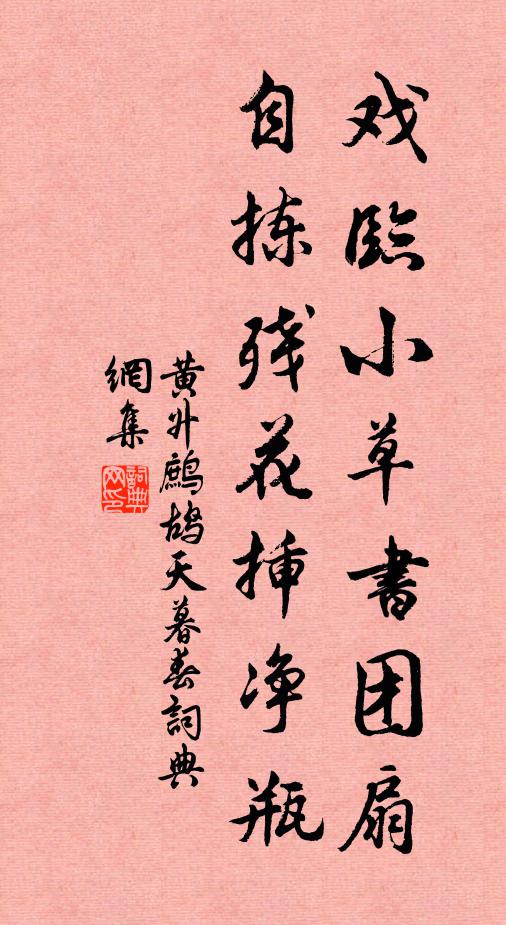 戏临小草书团扇
自拣残花插净瓶
黄升鹧鸪天暮春词典
網集
詞典網印